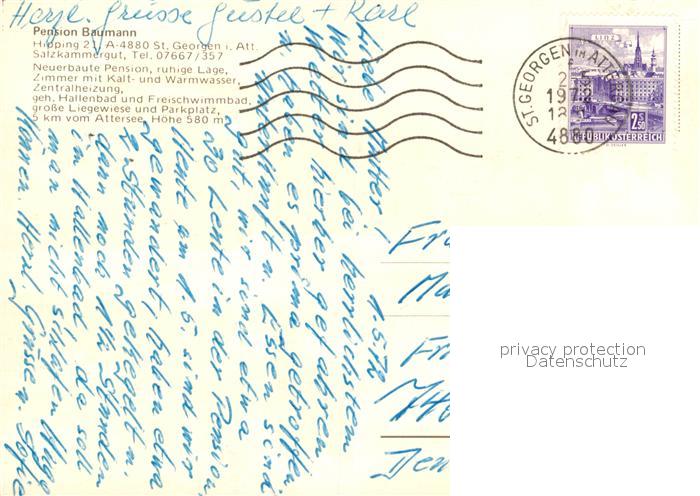 Herzl. Grüsse Gustel + Karl
Pension Baumann
Hipping 21, A-4880 St. Georgen i. Att.
Salzkammergut, Tel. 07667/357
Neuerbaute Pension, ruhige Lage,
Zimmer mit Kalt- und Warmwasser,
Zentralheizung,
geh. Hallenbad und Freischwimmbad,
große Liegewiese und Parkplatz,
5 km vom Attersee, Höhe 580 m
LINZ
ST. GEORGEN IM ATTERGAU
197
4880
2.50
REPUBLIK ÖSTERREICH
Liebe
Wir sind bei herrlichstem
Wetter hierher gefahren
u. haben es prima getroffen.
Unterkunft u. Essen sind
gut, wir sind etwa
30 Leute in der Pension.
Heute am 15. sind wir
gewandert, haben etwa
2 Stunden gekegelt u.
dann noch 1½ Stunden
im Hallenbad, da soll
man nicht schlafen
können. Herzl. Grüsse
privacy protection
Datenschutz